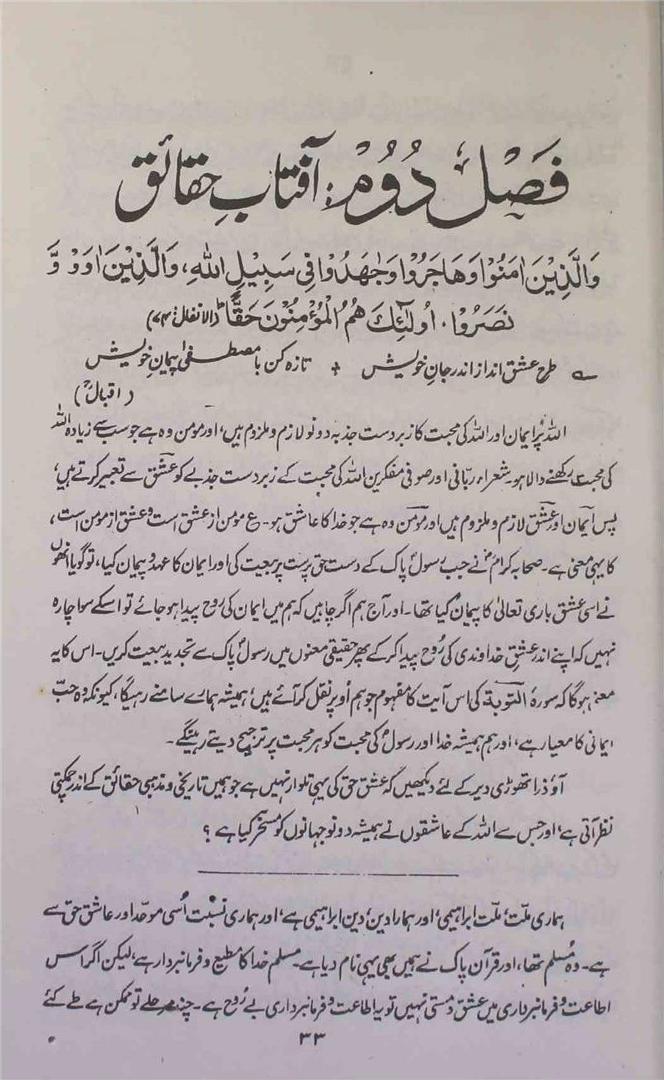 فَصْل دُوُمْ: آفتابِ حقائق
وَالَّذِيْنَ اٰمَنُوْا وَهَاجَرُوْا وَجٰهَدُوْا فِيْ سَبِيْلِ اللهِ، وَالَّذِيْنَ اٰوَوْا وَّ
نَصَرُوْا۔ اُولٰٓئِكَ هُمُ الْمُؤْمِنُوْنَ حَقًّا ؕ (الانفال: ۷۴)
؎ طرح عشق انداز اندر جانِ خویش + تازہ کن با مصطفیٰؐ پیمانِ خویش
(اقبالؒ)
اللہ پر ایمان اور اللہ کی محبت کا زبردست جذبہ دونو لازم و ملزوم ہیں، اور مومن وہ ہے جو سب سے زیادہ اللہ
کی محبت رکھنے والا ہو۔ شعراء ربّانی اور صوفی مفکرین اللہ کی محبت کے زبردست جذبے کو عشق سے تعبیر کرتے ہیں،
پس ایمان اور عشق لازم و ملزوم ہیں اور مومن وہ ہے جو خدا کا عاشق ہو۔ ع مومن از عشق است و عشق از مومن است،
کا یہی معنی ہے۔ صحابہ کرامؓ نے جب رسولِؐ پاک کے دست حق پرست پر بیعت کی اور ایمان کا عہد و پیمان کیا، تو گویا انھوں
نے اسی عشق باری تعالیٰ کا پیمان کیا تھا۔ اور آج ہم اگر چاہیں کہ ہم میں ایمان کی روح پیدا ہو جائے تو اسکے سوا چارہ
نہیں کہ اپنے اندر عشق خداوندی کی رُوح پیدا کر کے پھر حقیقی معنوں میں رسولِؐ پاک سے تجدید بیعت کریں۔ اس کا یہ
معنی ہوگا کہ سورۂ التوبۃ کی اس آیت کا مفہوم جو ہم اُوپر نقل کر آئے ہیں، ہمیشہ ہمارے سامنے رہیگا، کیونکہ وہ حبّ
ایمانی کا معیار ہے، اور ہم ہمیشہ خدا اور رسولؐ کی محبت کو ہر محبت پر ترجیح دیتے رہینگے۔
آؤ ذرا تھوڑی دیر کے لئے دیکھیں کہ عشق حق کی یہی تلوار نہیں ہے جو ہمیں تاریخی و مذہبی حقائق کے اندر چمکتی
نظر آتی ہے، اور جس سے اللہ کے عاشقوں نے ہمیشہ دونو جہانوں کو مسخر کیا ہے؟
ہماری ملّت، ملّت ابراہیمی، اور ہمارا دین، دین ابراہیمی ہے، اور ہماری نسبت اُسی موحّد اور عاشق حق سے
ہے۔ وہ مُسلم تھا، اور قرآن پاک نے ہمیں بھی یہی نام دیا ہے۔ مسلم خدا کا مطیع و فرمانبردار ہے، لیکن اگر اس
اطاعت و فرمانبرداری میں عشق و مستی نہیں تو یہ اطاعت و فرمانبرداری بے رُوح ہے۔ چند مرحلے تو ممکن ہے طے کئے
۳۳